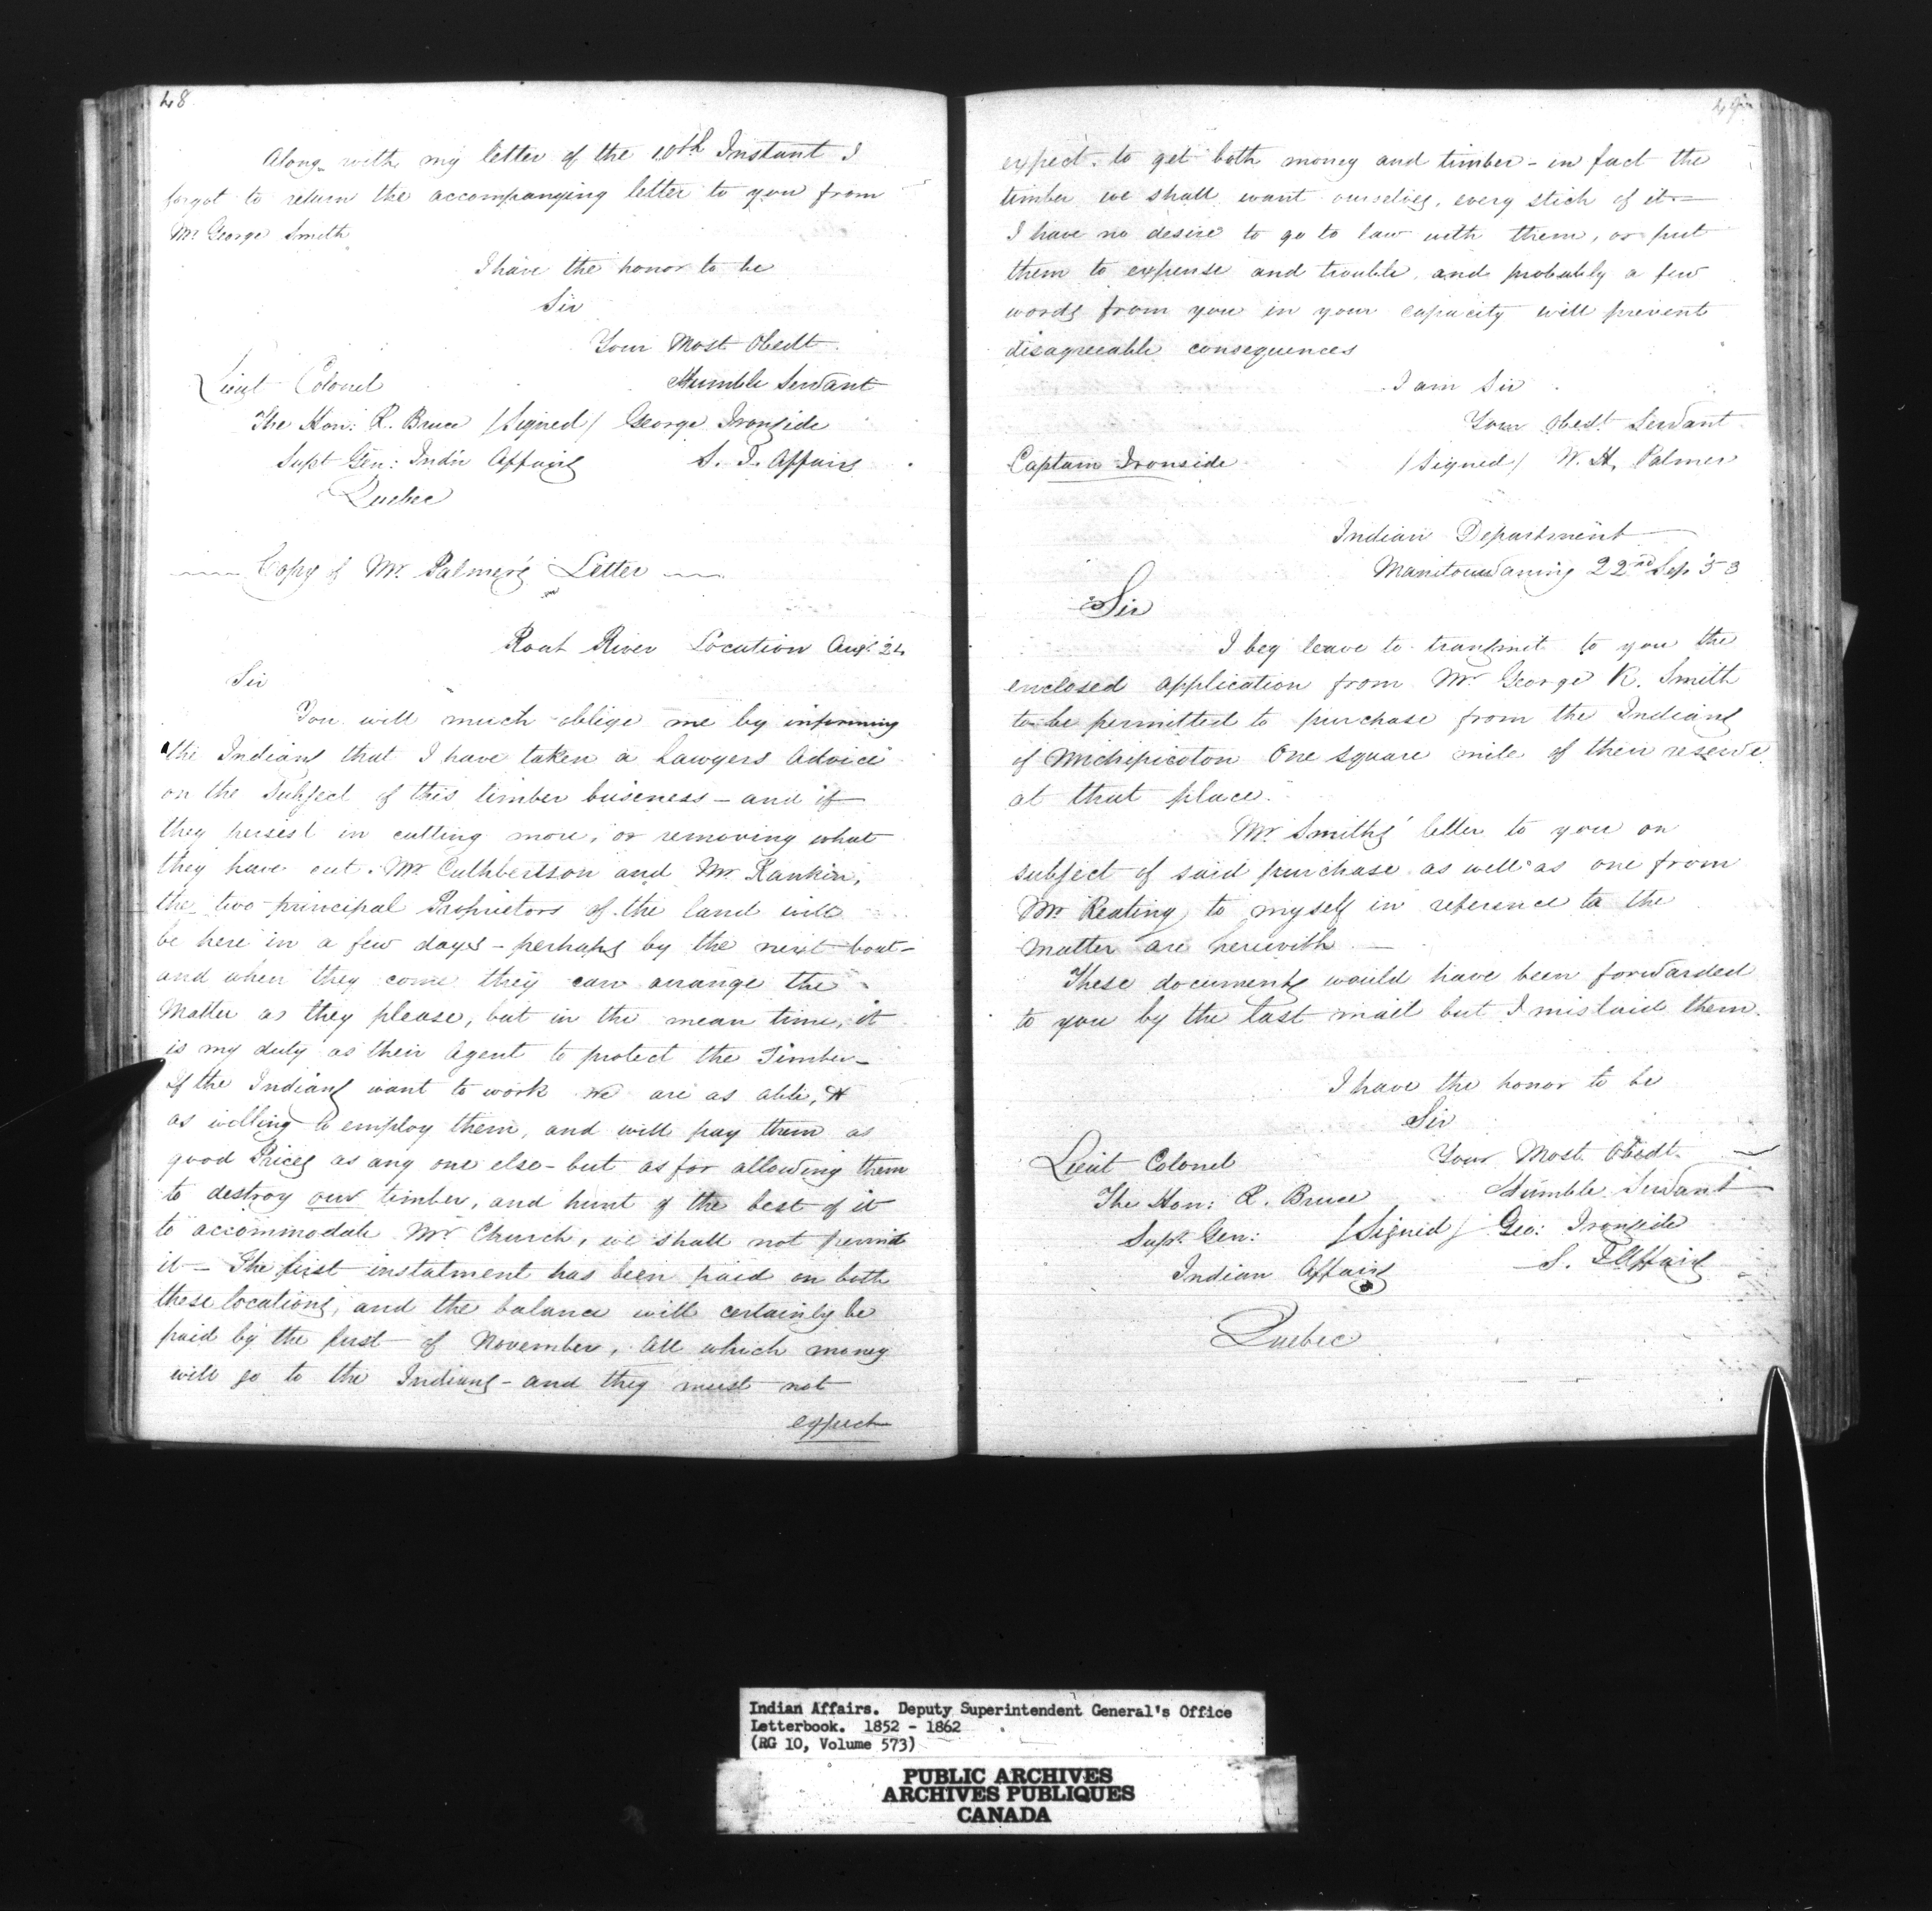 48
Along with my letter of the 10th Instant I
forgot to return the accompanying letter to you from
Mr George Smith
I have the honor to be
Sir
Your Most Obedt
Humble Servant
Lieut Colonel
The Hon: R. Bruce /Signed/ George Ironside
Supt Gen: Indn Affairs S. I. Affairs
Quebec
Copy of Mr. Palmer's Letter
Root River Location Augt 24
Sir
You will much oblige me by informing
the Indians that I have taken a Lawyers Advice
on the Subject of this timber business - and if
they persist in cutting more, or removing what
they have cut. Mr Cuthbertson and Mr. Rankin,
the two principal Proprietors of the land will
be here in a few days - perhaps by the next boat -
and when they come they can arrange the
Matter as they please, but in the mean time, it
is my duty as their Agent to protect the Timber -
If the Indians want to work we are as able, &
as willing to employ them, and will pay them as
good Prices as any one else - but as for allowing them
to destroy our timber, and hunt of the best of it
to accommodate Mr Church, we shall not permit
it - The first instalment has been paid on both
these locations, and the balance will certainly be
paid by the first of November, All which money
will go to the Indians - and they must not
expect
49
expect to get both money and timber - in fact the
timber we shall want ourselves, every stick of it -
I have no desire to go to law with them, or put
them to expense and trouble, and probably a few
words from you in your capacity will prevent
disagreeable consequences
I am Sir
Your Obedt Servant
Captain Ironside /Signed/ W. H. Palmer
Indian Department
Manitouwaning 22nd Sep 53
Sir
I beg leave to transmit to you the
enclosed application from Mr George R. Smith
to be permitted to purchase from the Indians
of Michipicoton One square mile of their reserve
at that place.
Mr Smiths' letter to you on
subject of said purchase as well as one from
Mr Keating to myself in reference to the
Matter are herewith -
These documents would have been forwarded
to you by the last mail but I mislaid them.
I have the honor to be
Sir
Lieut Colonel Your Most Obedt
The Hon: R. Bruce Humble Servant
Supt Gen: /Signed/ Geo: Ironside
Indian Affairs S. I Affairs
Quebec
Indian Affairs. Deputy Superintendent General's Office
Letterbook. 1852 - 1862
(RG 10, Volume 573)
PUBLIC ARCHIVES
ARCHIVES PUBLIQUES
CANADA